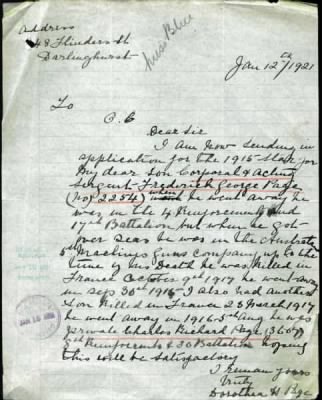 Address
48 Flinders St
Darlinghurst
Miss Blue
Jan 12th/1921
To
O. C
Dear Sir
I am now sending in
application for the 1915 Star for
My dear Son Corporal & Acting
Sergent Frederick George Page
(No 2254) when he went away he
was in the 4 Reinforcement and
17th Battalion but when he got
over Seas he was in the Australa
5th Machine Guns Company up to the
time of his Death he was Killed in
France October 9th 1917 he went away
in Sep 30th 1915 I also had another
Son Killed in France 23 March 1917
he went away in 1916 5th Aug he was
private Charles Richard Page
Reinforcements & 30 Battalion hoping
this will be satisfactory
I remain yours
truly
Dorothea H Page
JAN 1921